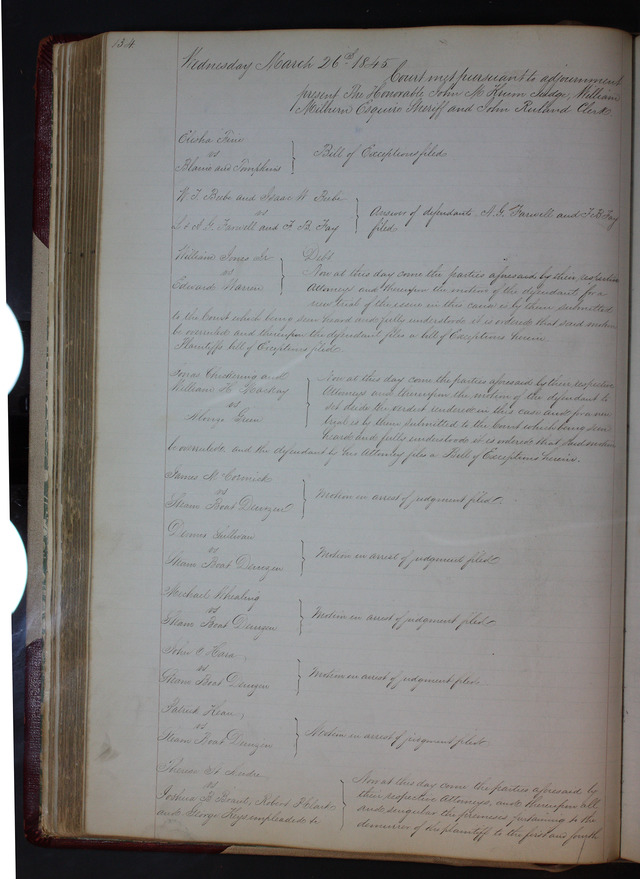 134
Wednesday March 26th 1845
Court met pursuant to adjournment
present The Honorable John M Krum Judge, William
Milburn Esquire Sheriff and John Ruland Clerk
Elisha
vs
Blaine and Tompkins } Bill of Exceptions filed
W. T. Beebe and Isaac W Beebe
vs
L & A G. Farwell and F. B. Fay } Answer of defendants A. G. Farwell and F. B. Fay
filed
William Jones Sr. Debt
vs } Now at this day come the parties aforesaid by their respective
Edward Warren Attorneys and thereupon the motion of the defendants for a
new trial of the issue in this cause is by them submitted
to the Court which being seen heard and fully understood it is ordered that said motion
be overruled and thereupon the defendant files a bill of Exceptions herein.
Plaintiffs bill of Exceptions filed
Jonas Chickering and } Now at this day come the parties aforesaid by their respective
William H. Mackay Attorneys and thereupon the motion of the defendant to
vs set aside the verdict rendered in this case and for a new
Alonzo trial is by them submitted to the Court which being seen
heard and fully understood it is ordered that said motion
be overruled. and the defendant by his Attorney files a Bill of Exceptions herein.
James McCormick
vs
Steam Boat } Motion in arrest of judgment filed.
Dennis Sullivan
vs
Steam Boat } Motion in arrest of judgment filed
Michael Whealing
vs
Steam Boat } Motion in arrest of judgment filed
John O Hara
vs
Steam Boat } Motion in arrest of judgment filed
Patrick
vs
Steam Boat } Motion in arrest of judgment filed
vs } Now at this day come the parties aforesaid by
Joshua B Brant, Robert P Clark their respective Attorneys, and thereupon all
and George Keys impleaded &c and singular the premises pertaining to the
demurrer of the plaintiff to the first and fourth